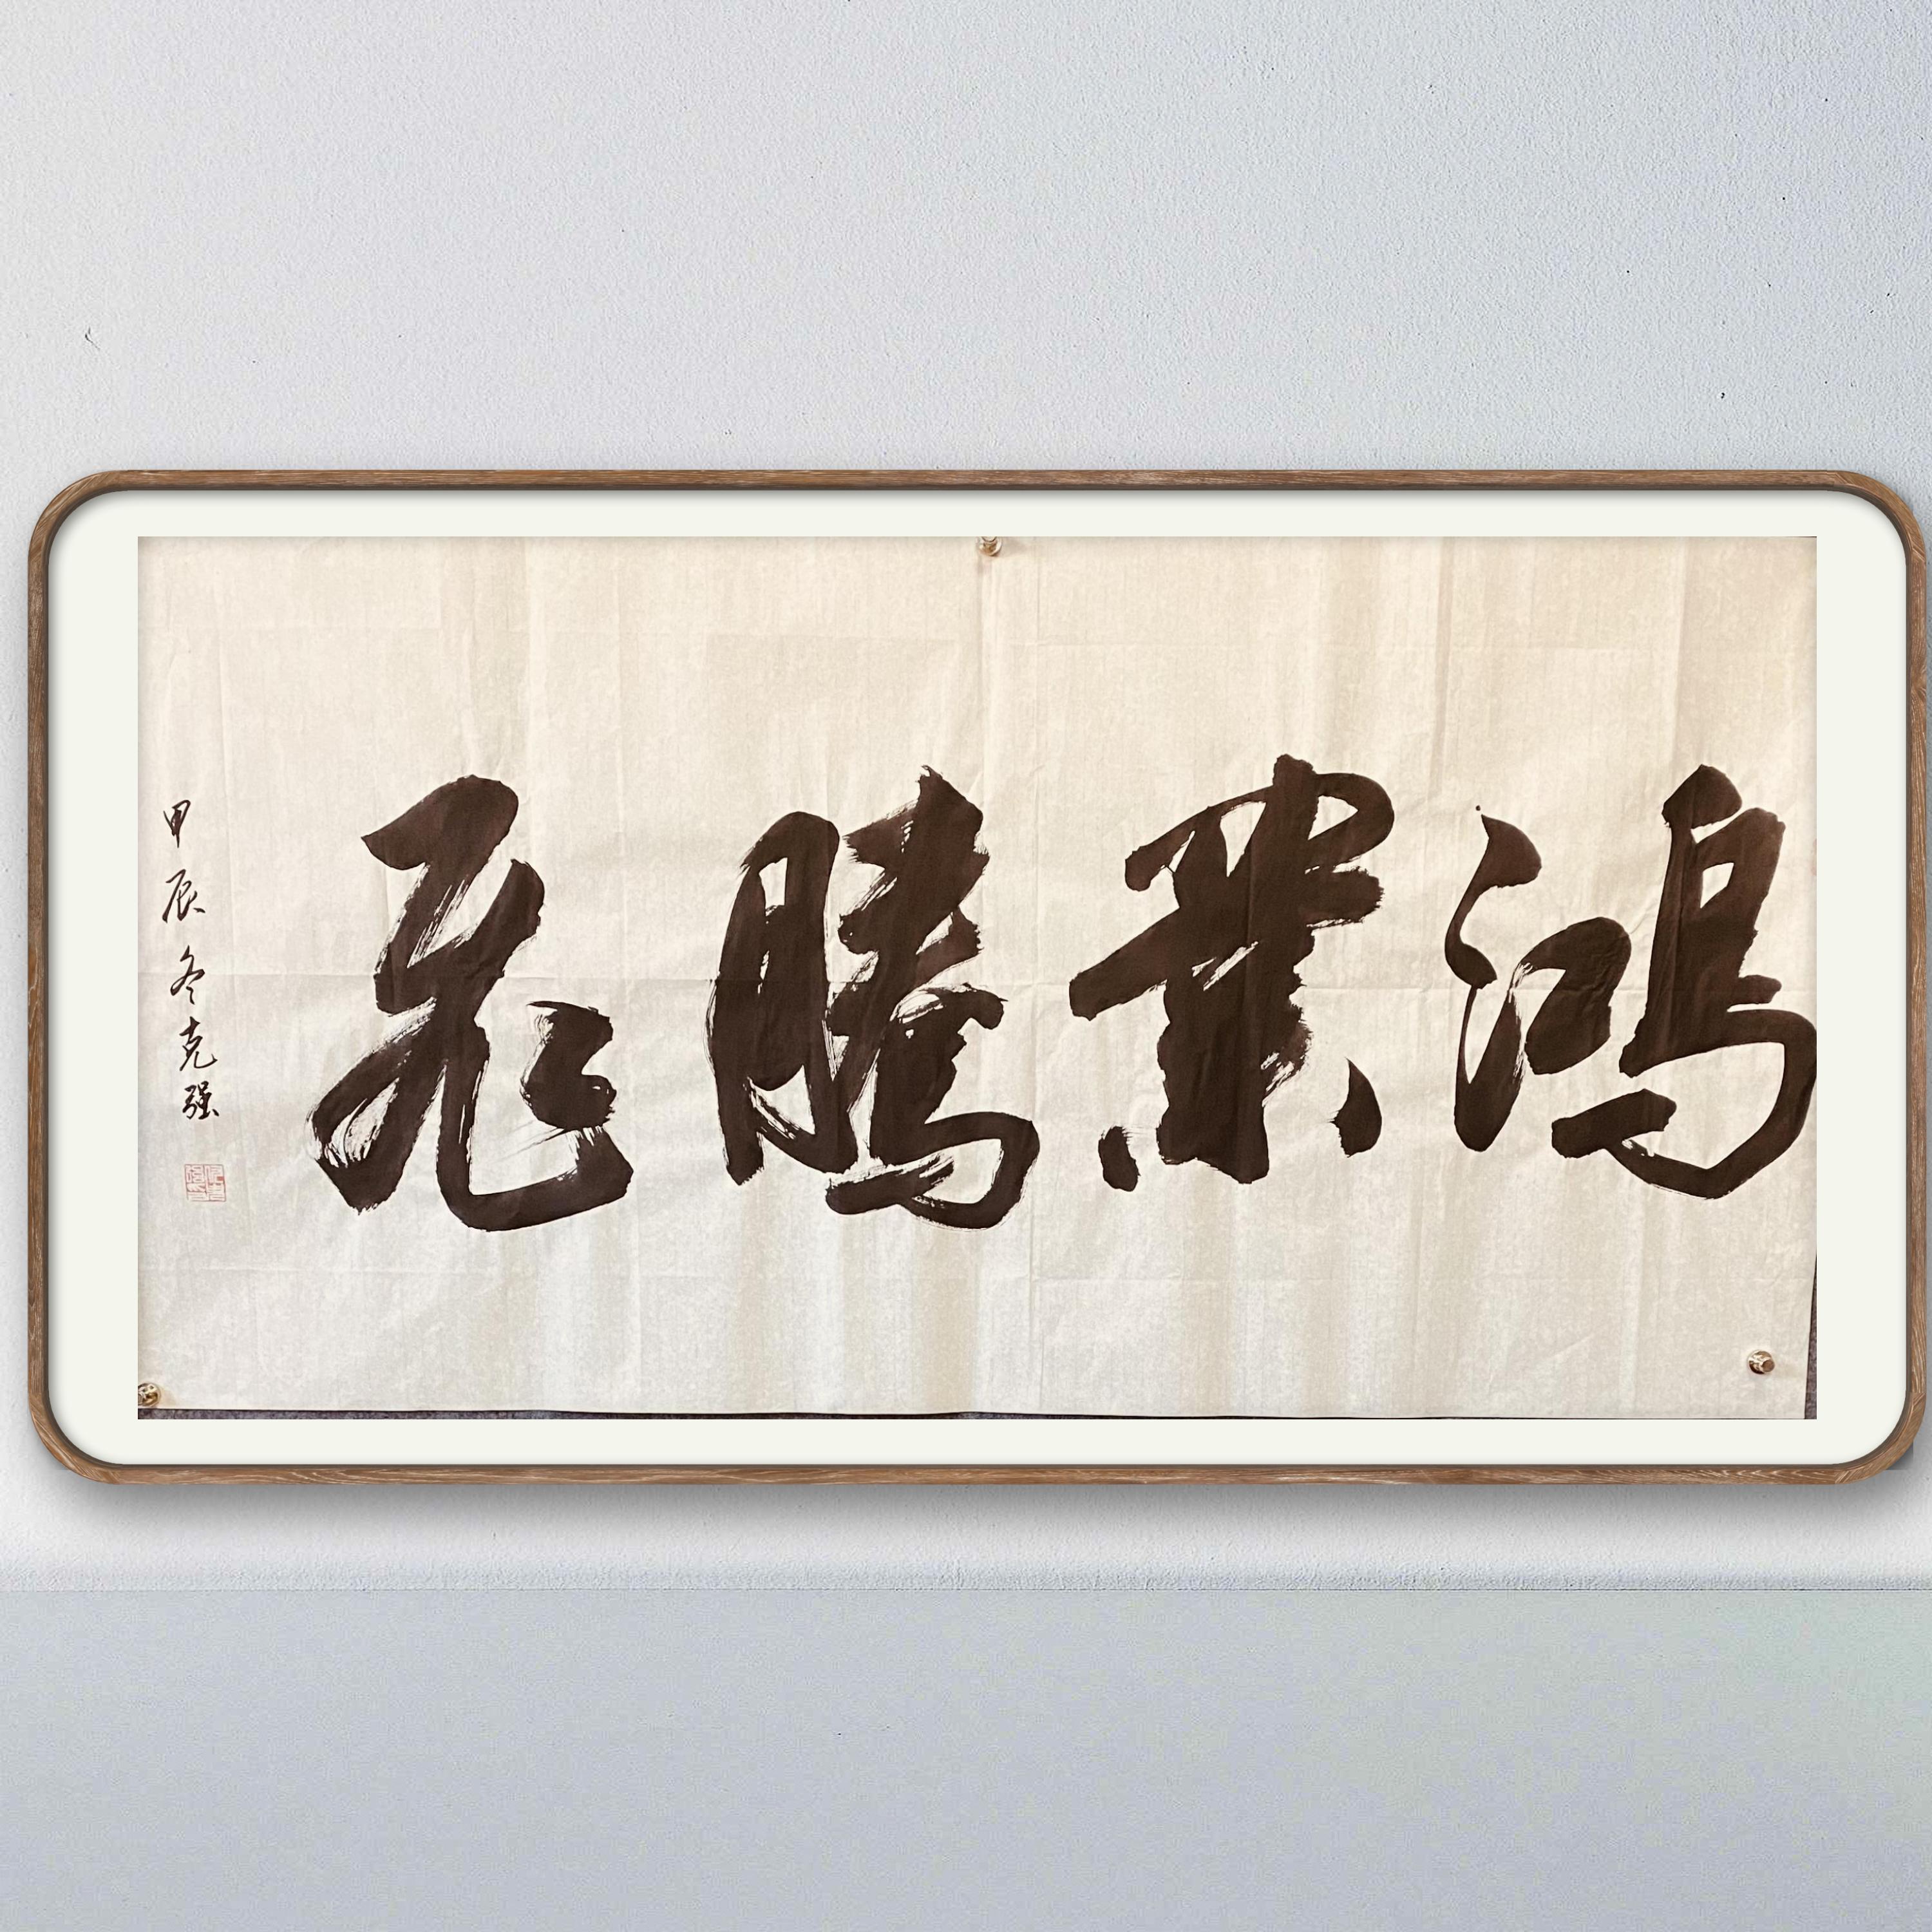 鸿業騰飛
甲辰冬克强